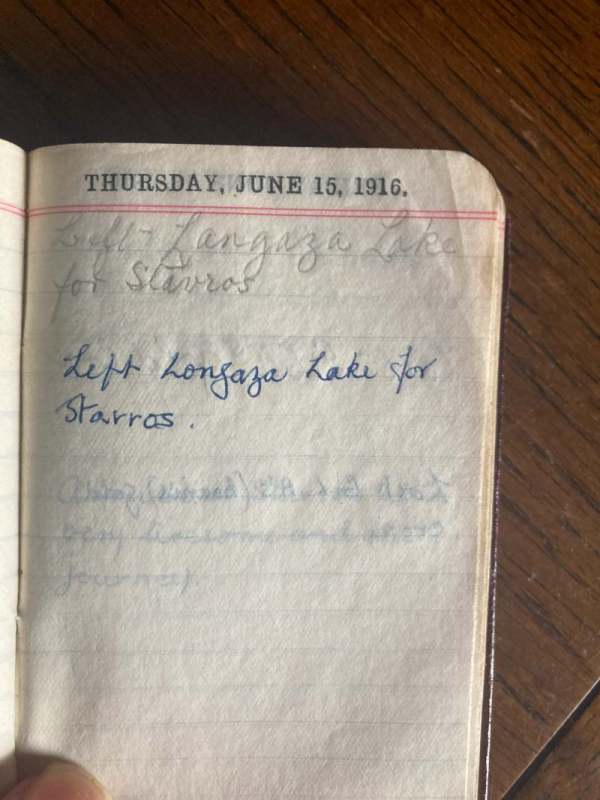 THURSDAY, JUNE 15, 1916.
Left Langaza Lake
for Stavros
Left Longaza Lake for
Starros.
very and
journey.